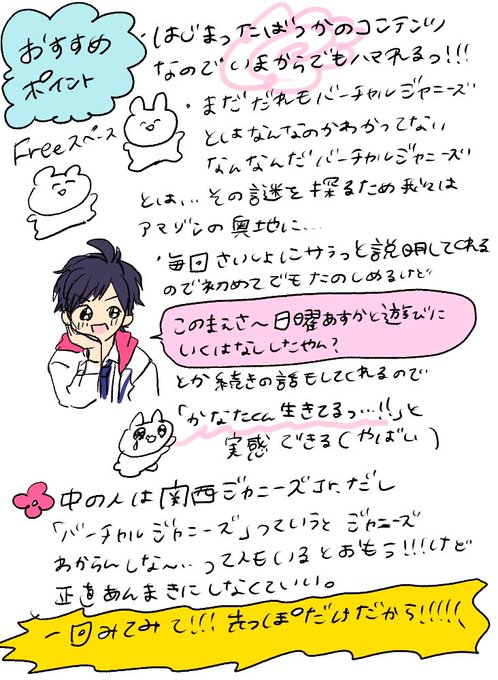 おすすめ
ポイント
・はじまったばっかのコンテンツ
なのでいまからでもハマれるっ!!!
Freeスペース
・まだだれもバーチャルジャニーズ
とはなんなのかわかってない
なんなんだバーチャルジャニーズ
とは… その謎を探るため我々は
アマゾンの奥地に…
・毎回さいしょにサラっと説明してくれる
ので初めてでもたのしめるけど
このまえさ〜日曜あすかと遊びに
いくはなししたやん?
とか続きの話もしてくれるので
「かなたくん生きてるっ…!!」と
実感できる(やばい)
中の人は関西ジャニーズJr.だし
「バーチャルジャニーズ」っていうとジャニーズ
わからんしな〜…って人もいるとおもう!!!けど
正直あんまきにしなくていい。
一回みてみて!!! さきっぽだけだから!!!!!